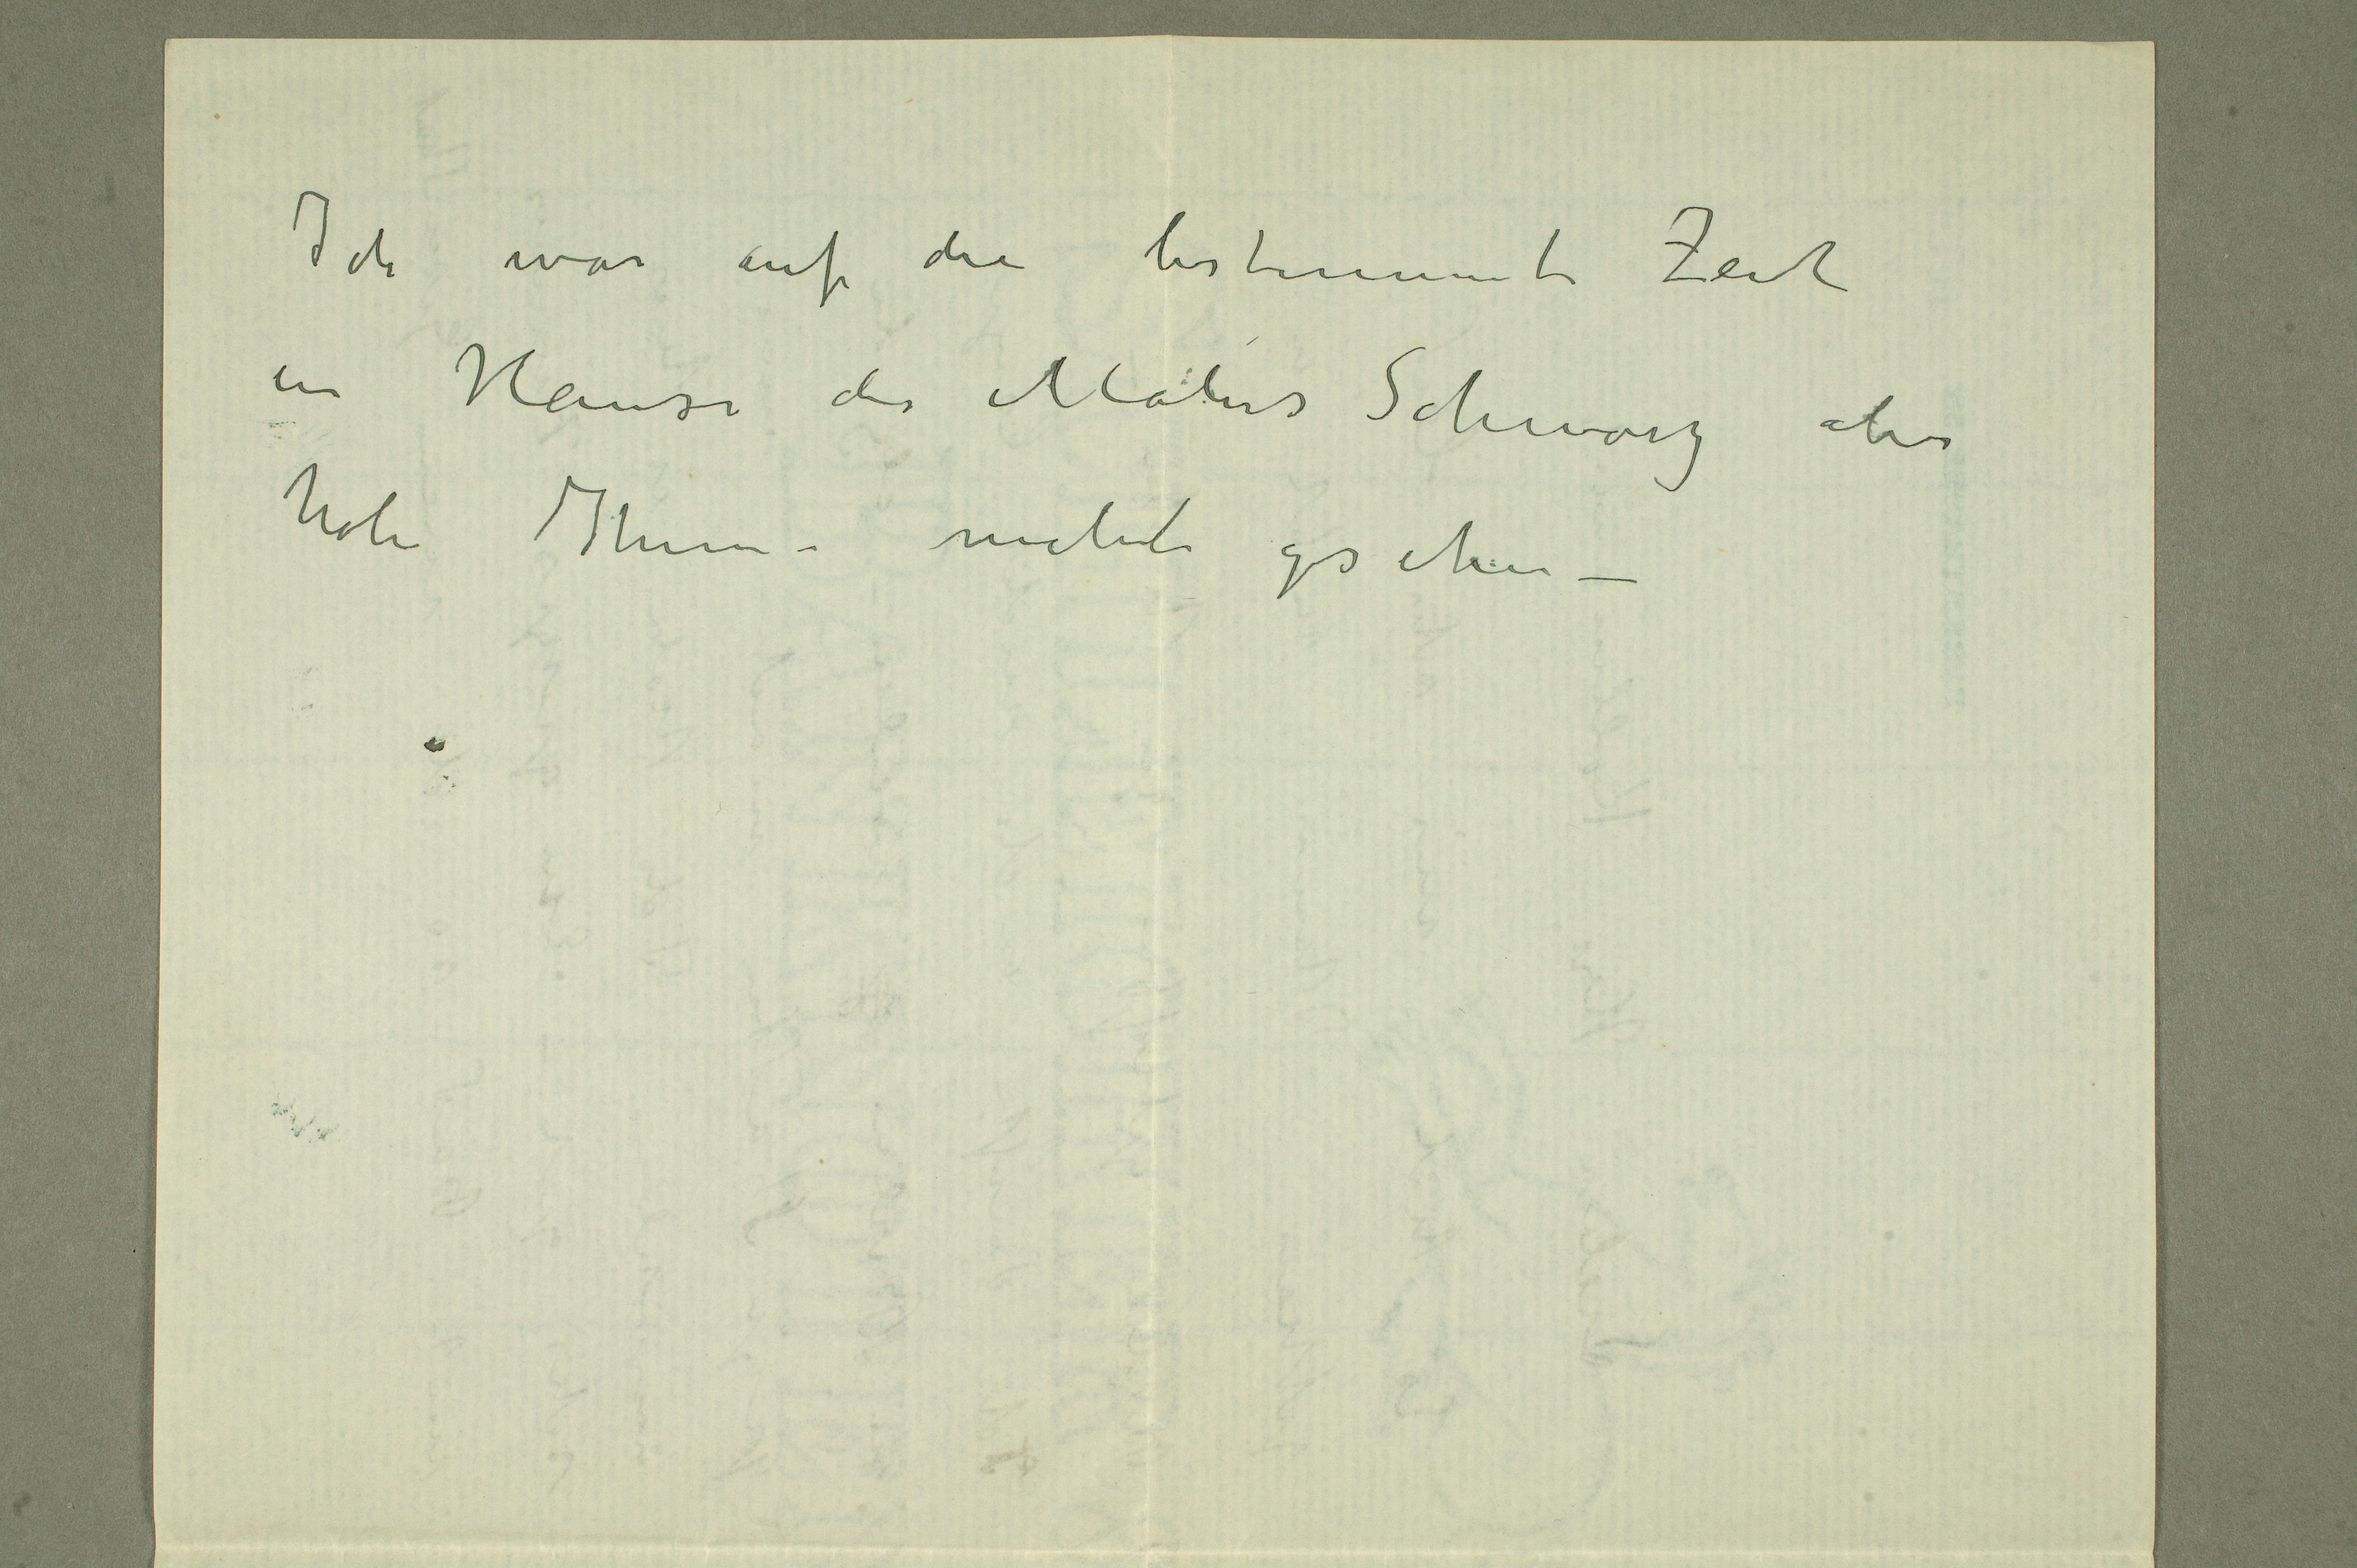 Ich war auf die bestimmte Zeit
im Hause des Malers Schwarz aber
habe Ihnen nicht gesehen –